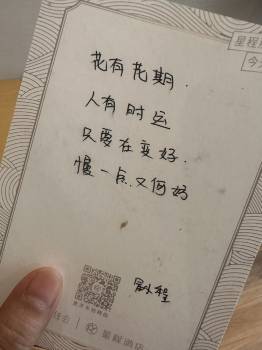 星程
今
花有花期.
人有时运
只要在变好.
慢一点又何妨
星程酒店